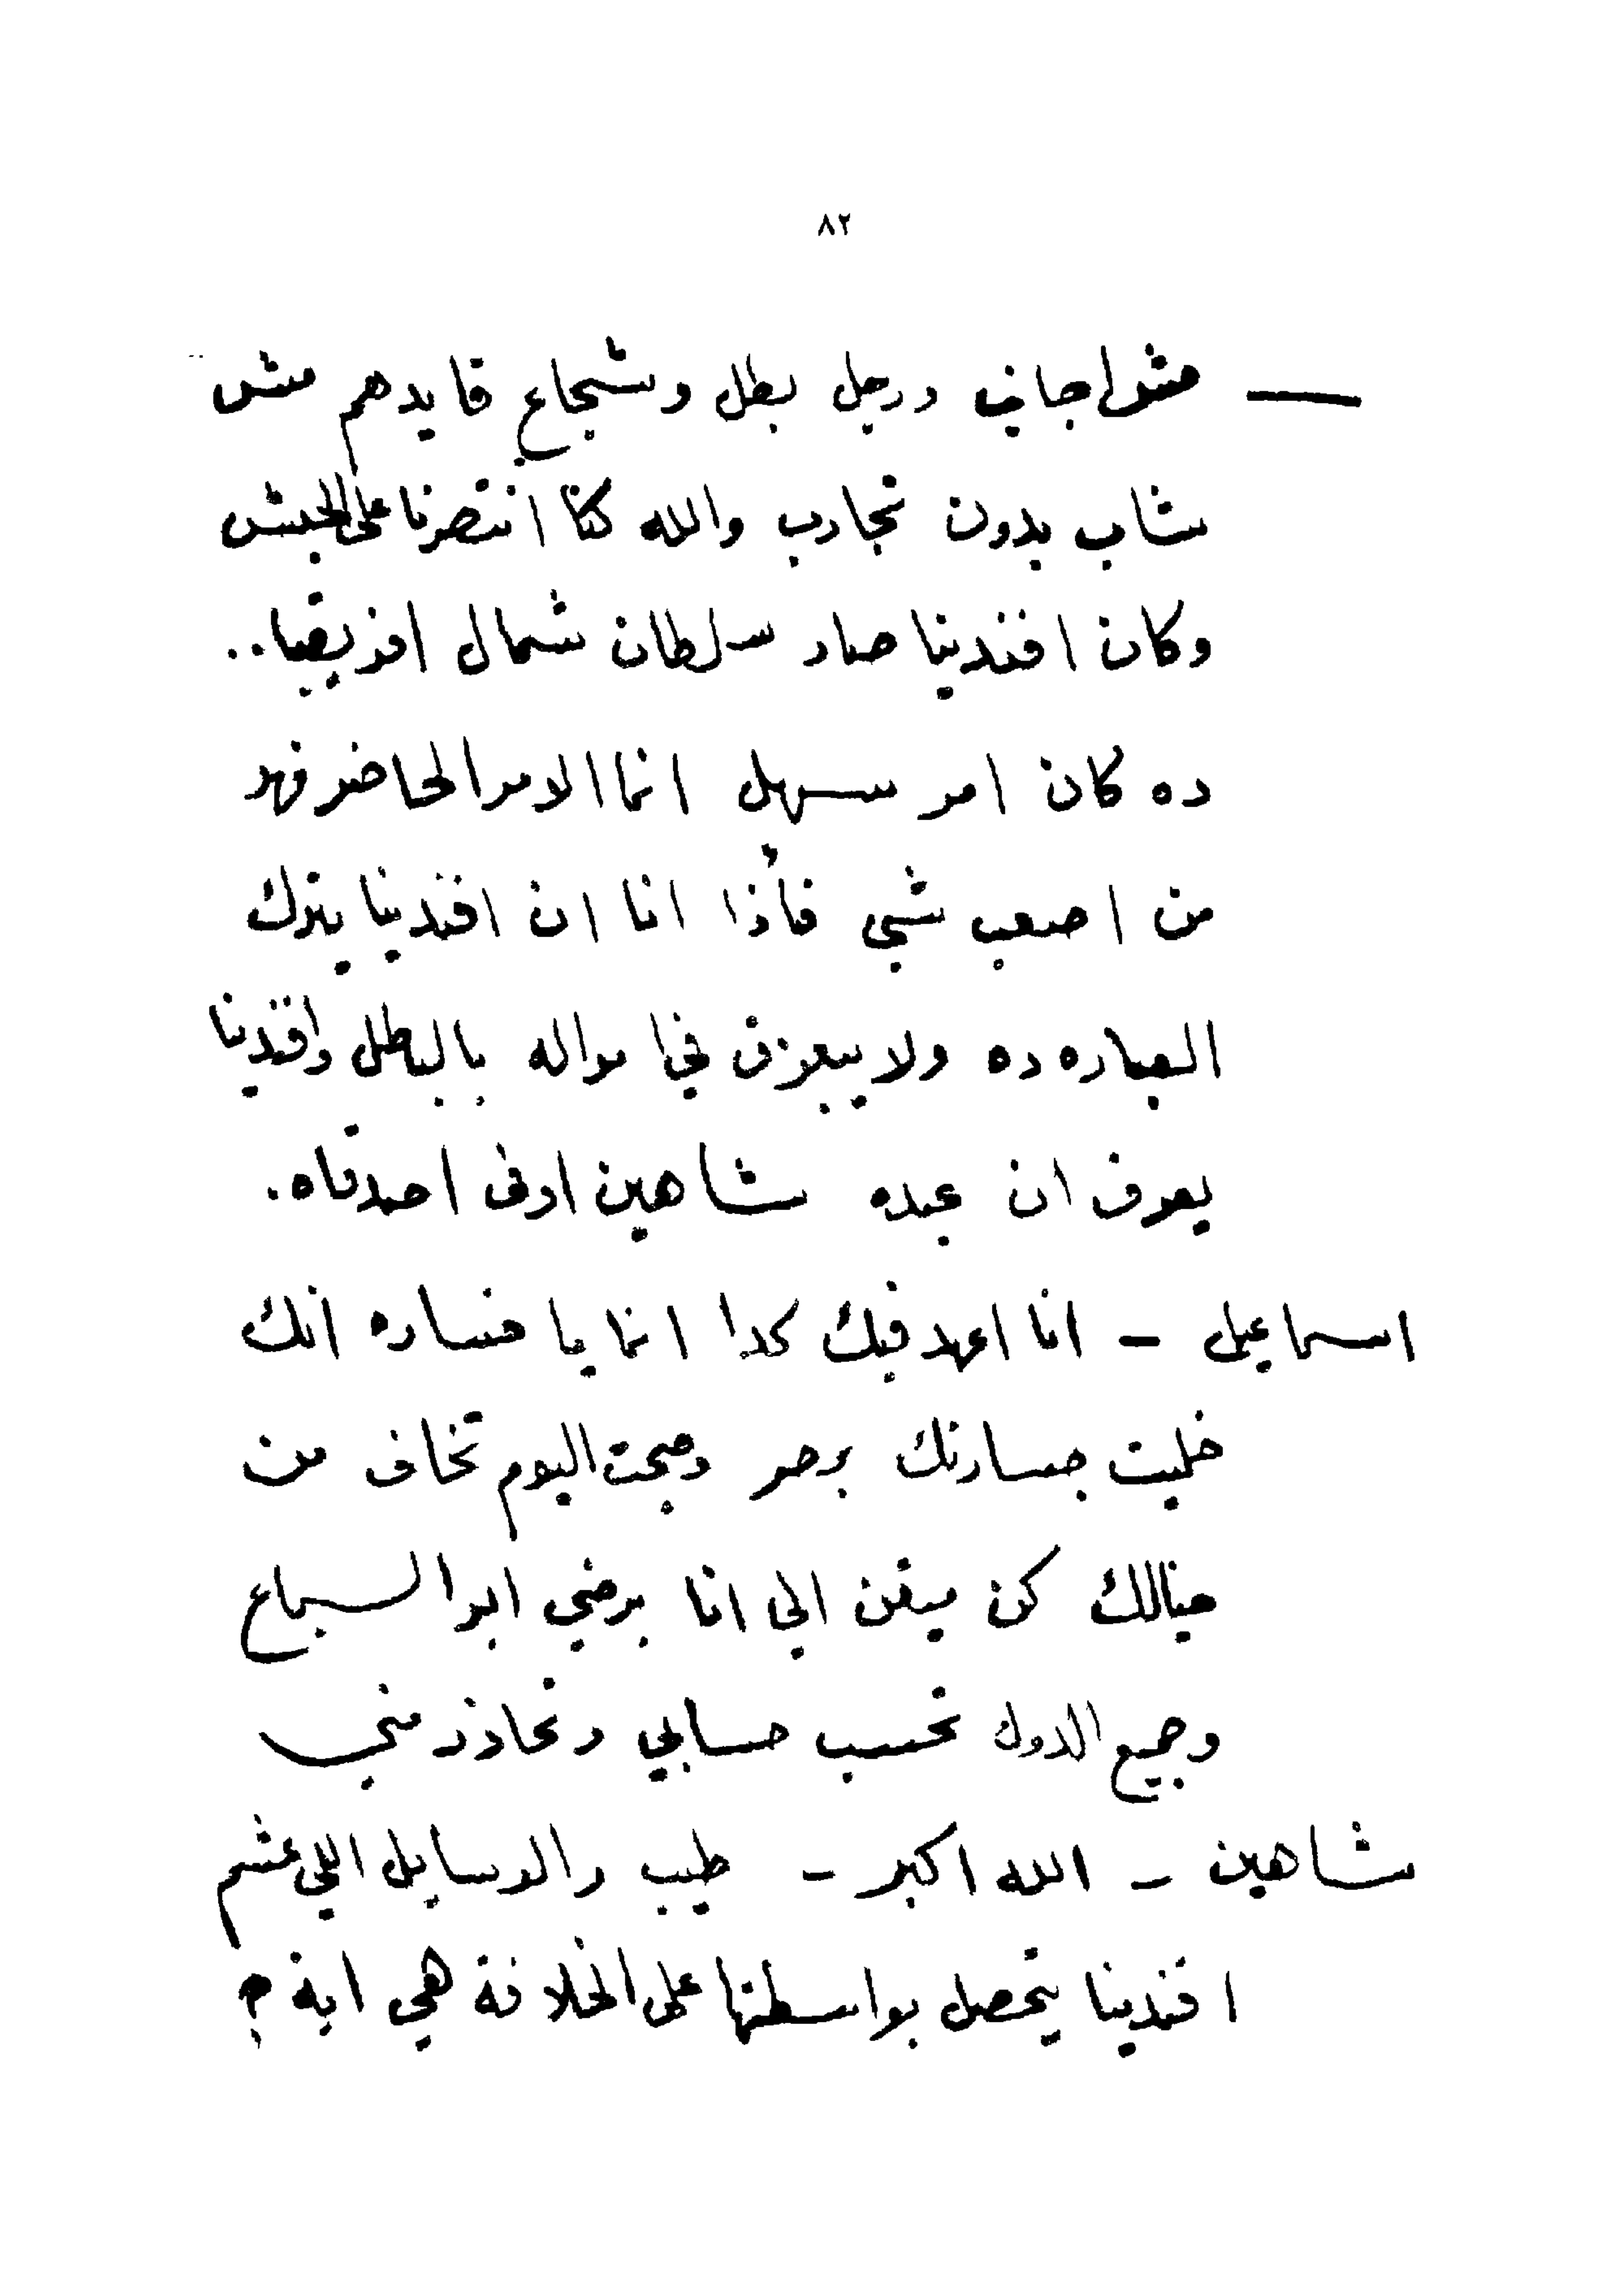 ٨٢
— مثل اجاني ورجل بطل وشجاع قايدهم مش
شاب بدون تجارب والله كنا انتصرنا على الحبش
وكان افندينا صار سلطان شمال افريقيا..
ده كان امر سهل انما الامر الحاضر فهو
من اصعب شي فأذا انا ان افندينا يترك
العباره ده ولا يبعزق في امواله بالبطل وافندينا
يعرف ان عبده شاهين اوفى اصدقاه.
اسماعيل – انا اعهد فيك كدا انما يا خساره انك
خليت جسارتك بمصر وصبحت اليوم تخاف من
خيالك كن ميقن الي انا برضي ابو السباع
وجميع الدول تحسب حسابي وتحاذر مني
شاهين – الله اكبر – طيب والوسايل اللي عشم
افندينا يتحصل بواسطتها على الخلافة هي اية ؟